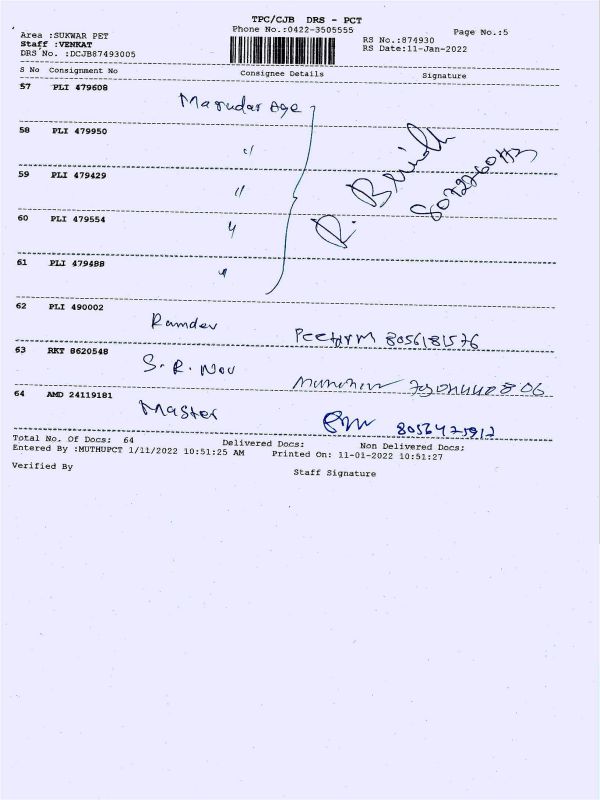 TPC/CJB DRS - PCT
Phone No.:0422-3505555
Page No.:5
Area :SUKWAR PET
RS No.:874930
Staff :VENKAT
RS Date:11-Jan-2022
DRS No. :DCJB87493005
S No Consignment No Consignee Details Signature
57 PLI 479608
Marudar Age
58 PLI 479950
"
59 PLI 479429
"
60 PLI 479554
"
61 PLI 479488
"
R.
62 PLI 490002
Ramdev 8056181576
63 RKT 8620548
S.R. Nov
64 AMD 24119181
Master
Total No. Of Docs: 64 Delivered Docs: Non Delivered Docs:
Entered By :MUTHUPCT 1/11/2022 10:51:25 AM Printed On: 11-01-2022 10:51:27
Verified By Staff Signature